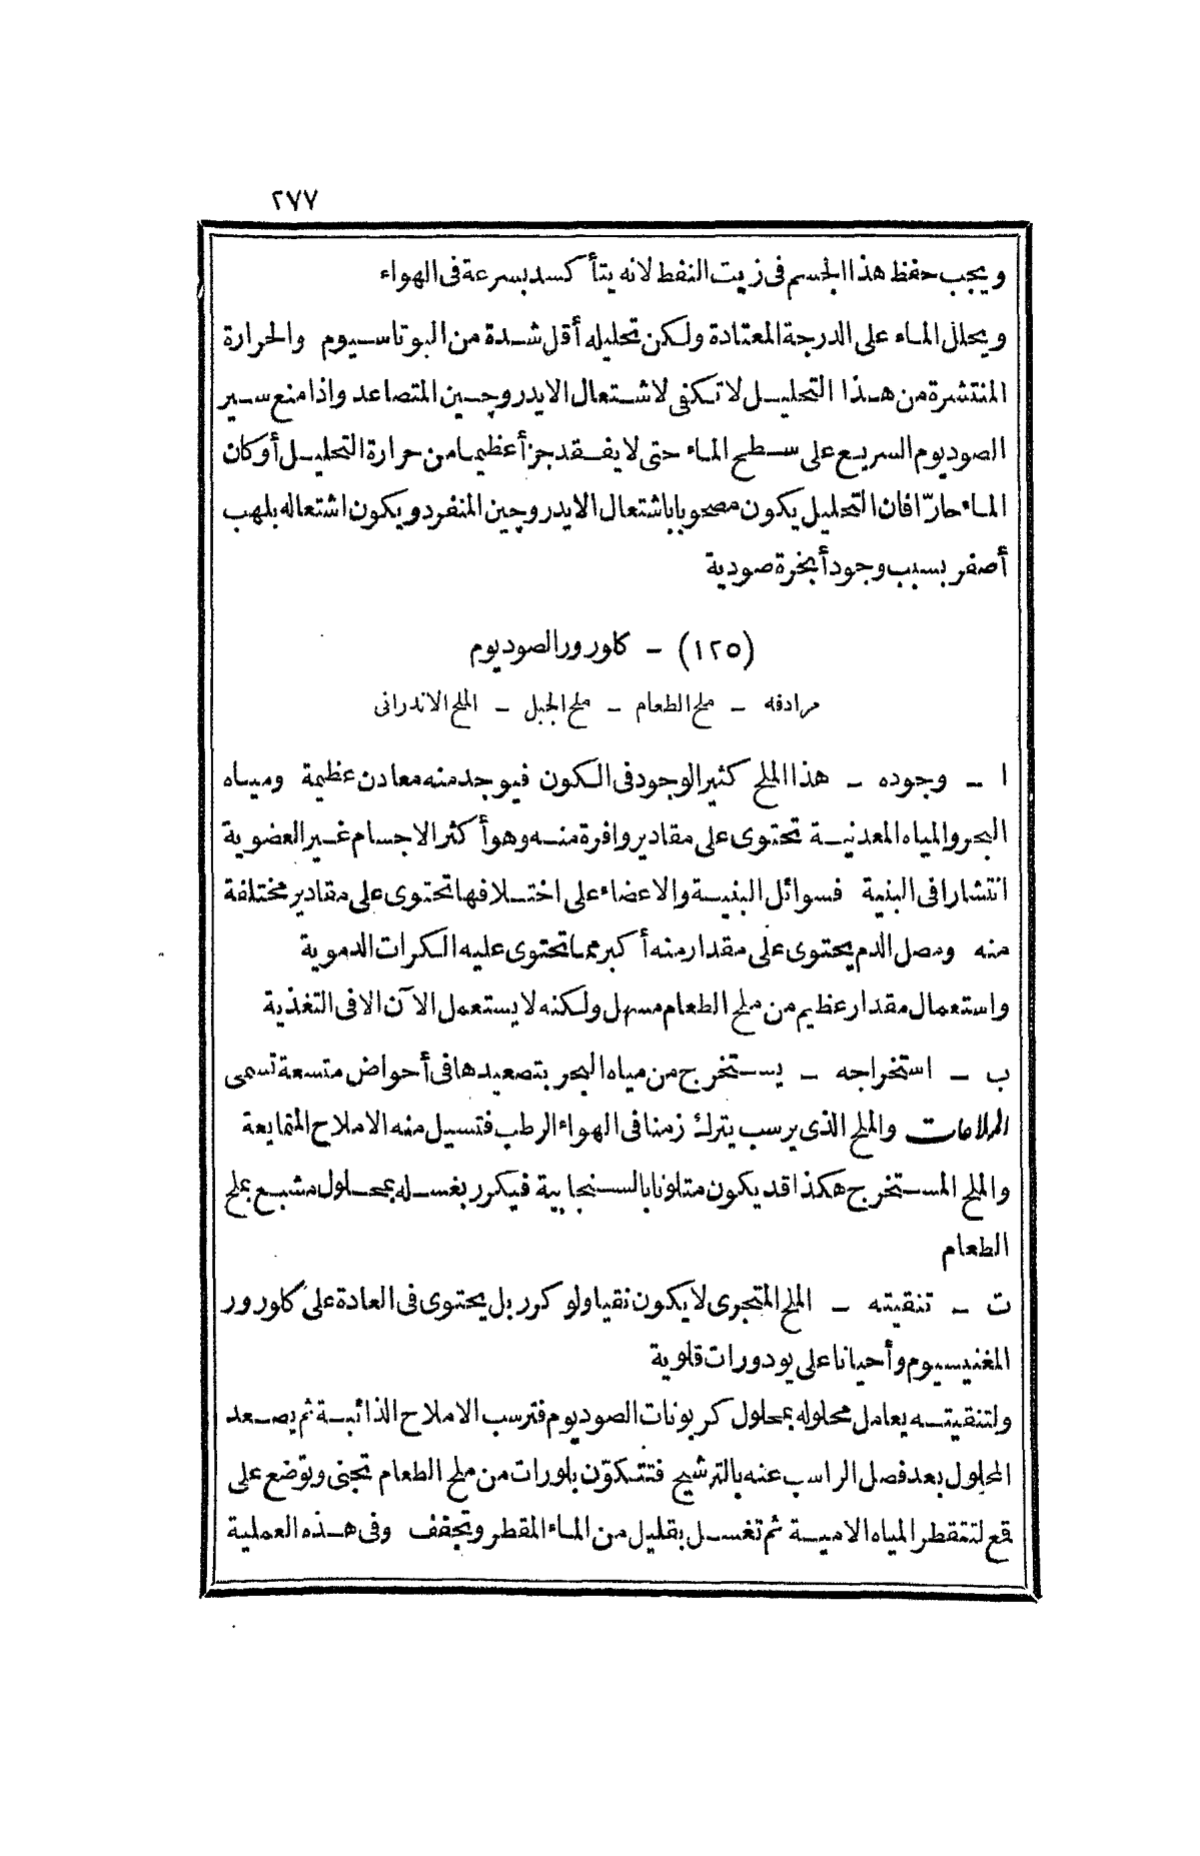 ٢٧٧
ويجب حفظ هذا الجسم فى زيت النفط لانه يتأكسد بسرعة فى الهواء
ويحلل الماء على الدرجة المعتادة ولكن تحليله أقل شدة من البوتاسيوم والحرارة
المنتشرة من هذا التحليل لا تكفى لاشتعال الايدروچين المتصاعد واذا منع سير
الصوديوم السريع على سطح الماء حتى لا يفقد جزأ عظيما من حرارة التحليل أو كان
الماء حارّا فان التحليل يكون مصحوبا باشتعال الايدروچين المنفرد ويكون اشتعاله بلهب
أصفر بسبب وجود أبخرة صودية
(١٢٥) - كلورور الصوديوم
مرادفه - ملح الطعام - ملح الجبل - الملح الاندرانى
ا - وجوده - هذا الملح كثير الوجود فى الكون فيوجد منه معادن عظيمة ومياه
البحر والمياه المعدنية تحتوى على مقادير وافرة منه وهو أكثر الاجسام غير العضوية
انتشارا فى البنية فسوائل البنية والاعضاء على اختلافها تحتوى على مقادير مختلفة
منه ومصل الدم يحتوى على مقدار منه أكبر مما تحتوى عليه الكرات الدموية
واستعمال مقدار عظيم من ملح الطعام مسهل ولكنه لا يستعمل الآن الا فى التغذية
ب - استخراجه - يستخرج من مياه البحر بتصعيدها فى أحواض متسعة تسمى
الملاحات والملح الذى يرسب يترك زمنا فى الهواء الرطب فتسيل منه الاملاح المتمايعة
والملح المستخرج هكذا قد يكون متلونا بالسنجابية فيكرر بغسله بمحلول مشبع بملح
الطعام
ت - تنقيته - الملح المتجرى لا يكون نقيا ولو كرر بل يحتوى فى العادة على كلورور
المغنيسيوم وأحيانا على يودورات قلوية
ولتنقيته يعامل محلوله بمحلول كربونات الصوديوم فترسب الاملاح الذائبة ثم يصعد
المحلول بعد فصل الراسب عنه بالترشيح فتتكوّن بلورات من ملح الطعام تجنى وتوضع على
قمع لتتقطر المياه الامية ثم تغسل بقليل من الماء المقطر وتجفف وفى هذه العملية